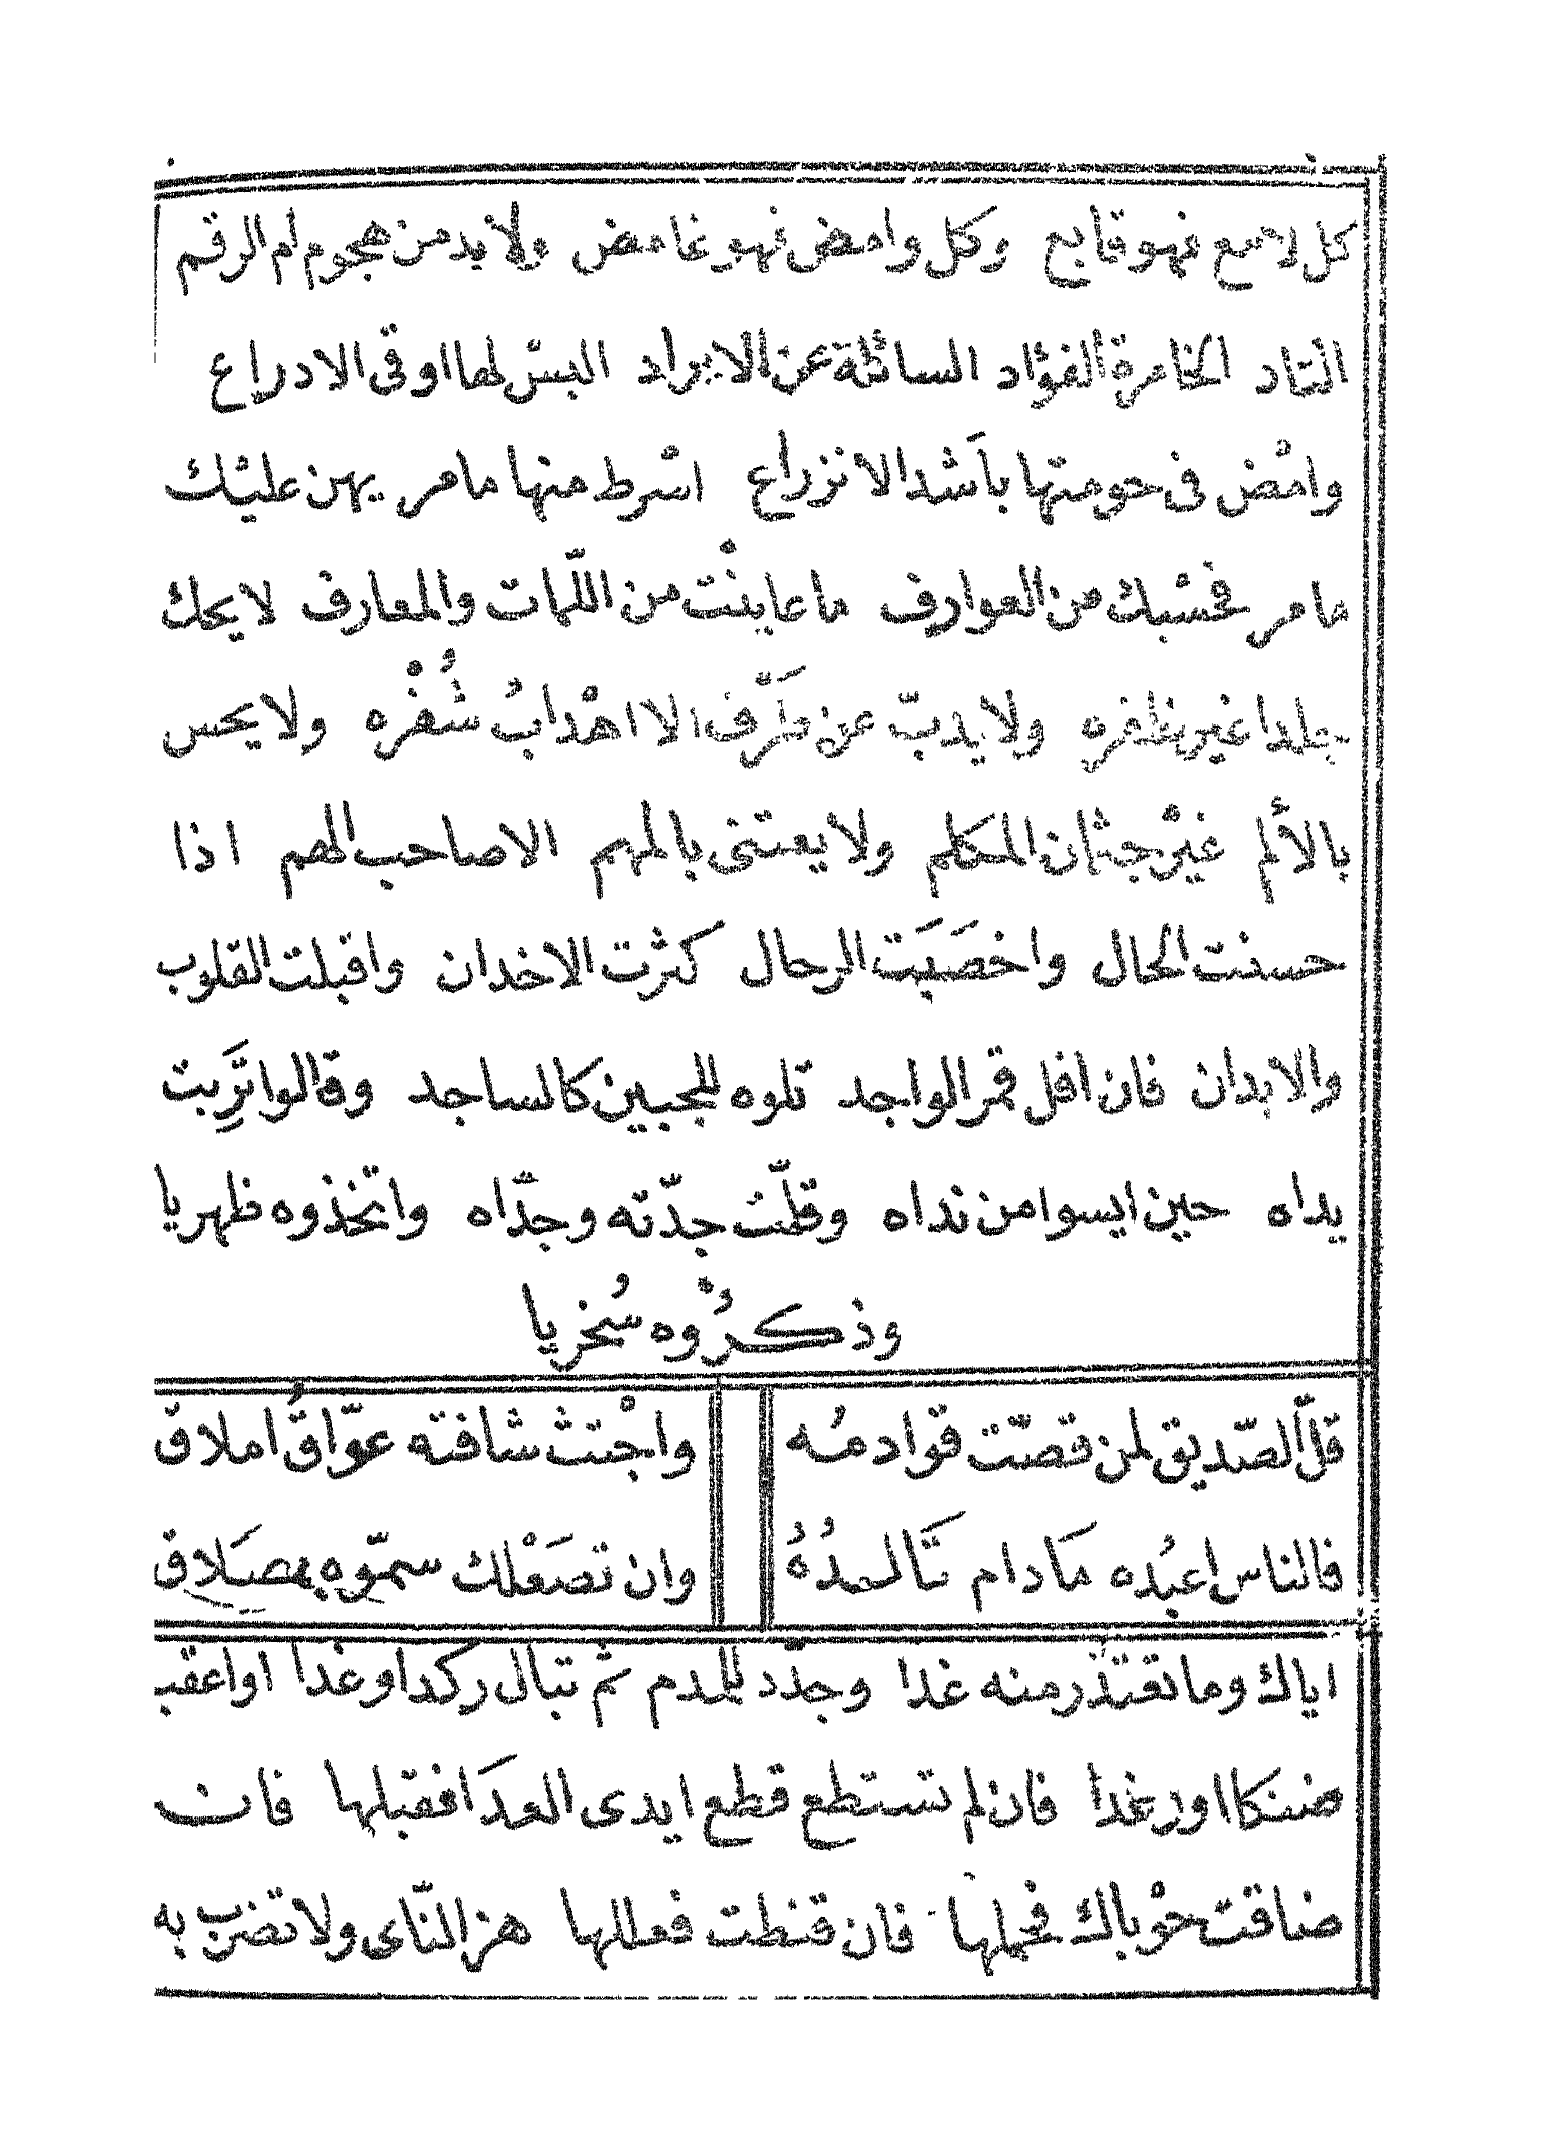 كل لامع فهو قابع وكل وامض فهو غامض ولا بد من هجوم ام الرقم
الناد الخامرة الفؤاد السائلة عن الايراد البس لها اوقى الادراع
وامض فى حومتها باشد الانزراع اشرط منها مامر يهن عليك
مامر فحسبك من العوارف ما عاينت من اللمات والمعارف لا يحك
جلدا غير ظفره ولا يذب عن طرف الا اهداب شفره ولا يحس
بالألم غير جثمان المكلم ولا يعتنى بالمهم الا صاحب الهم اذا
حسنت الحال واخصبت الرحال كثرت الاخدان واقبلت القلوب
والابدان فان افل قمر الواجد تلوه للجبين كالساجد وقالوا تربت
يداه حين ايسوا من نداه وقلت جدته وجداه واتخذوه ظهريا
وذكروه سخريا
قل الصديق لمن قصت قوادمه واجتث شافته عواق املاق
فالناس اعبده مادام تالده وان تصعلك سموه بمصلاق
اياك وما تعتذر منه غدا وجدد للمدم ثم تبال ركدا وغدا اواعقب
ضنكا اورغدا فان لم تستطع قطع ايدى العدا فقبلها فان
ضاقت حوباك فحملها فان قنطت فعللها هز الناى ولا تضرب به